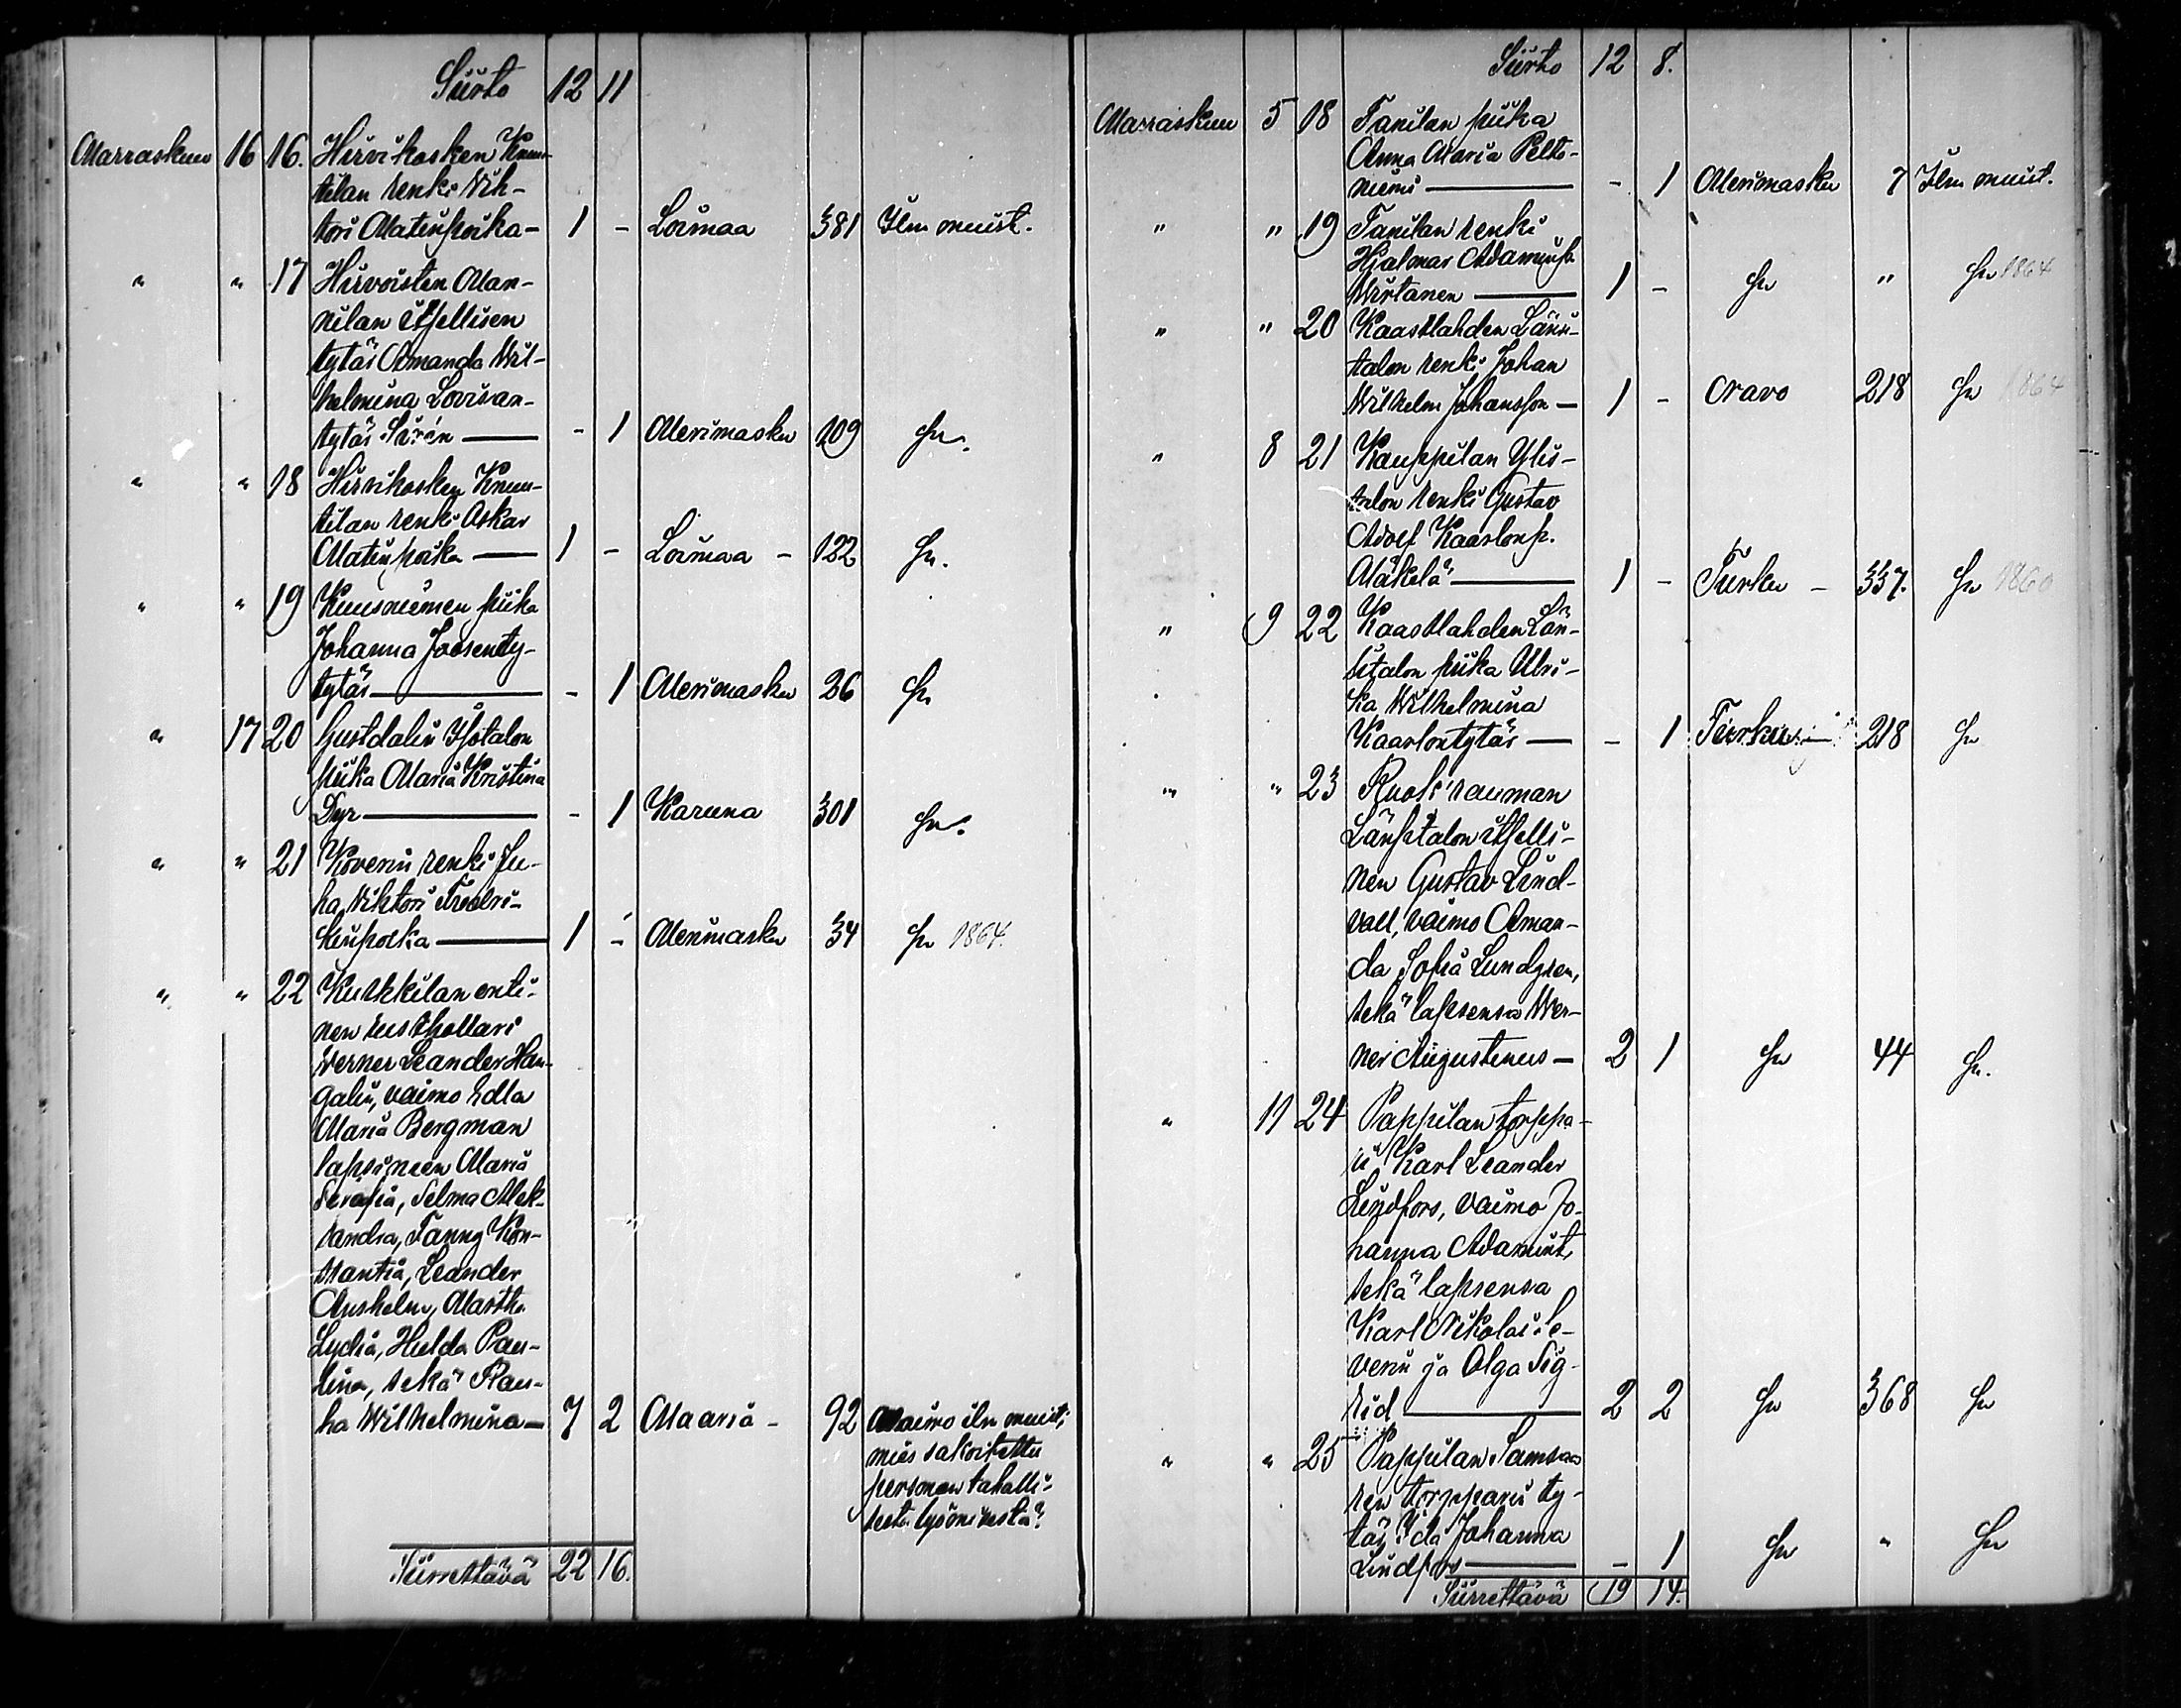 Siirto 12 11
Marraskuu 16 16. Hirvikosken Knuu-
tilan renki Wih-
tori Matinpoika - 1 - Loimaa 381 Ilm muist.
" " 17 Hirvoisten Man-
nilan itsellisen
tytär Amanda Wil-
helmina Lovisan-
tytär Sirén — - 1 Merimasku 109 Sn.
" " 18 Hirvikosken Knuu-
tilan renki Oskar
Matinpoika — 1 - Loimaa - 122 Sn.
" " 19 Kuusniemen piika
Johanna Joosenty-
tytär — - 1 Merimasku 26 Sn
" 17 20 Gustdalin Isotalon
piika Maria Kristina
Dyr — - 1 Karuna 301 Sn.
" " 21 Koverin renki Ju-
ha Viktori Fredri-
kinpoika — 1 - Merimasku 34 Sn 1864.
" " 22 Kurkkilan enti-
nen rusthollari
Werner Leander Han-
galin, vaimo Edla
Maria Bergman
lapsineen Maria
Serafia, Selma Alek-
sandra, Fanny Kon-
stantia, Leander
Anshelm, Martha
Lydia, Hulda Pau-
lina, sekä Rau-
ha Wilhelmina — 7 2 Maaria - 92 Waimo ilm muist;
mies sakoitettu
personan tahalli-
sesta lyömisestä.
Siirrettävä 22 16.
Siirto 12 8.
Marraskuu 5 18 Tanilan piika
Anna Maria Pelto-
niemi — - 1 Merimasku 7 Ilm muist.
" " 19 Tanilan renki
Hjalmar Adaminp.
Wirtanen — 1 - Sn " Sn 1864
" " 20 Kaastlahden Länsi-
talon renki Johan
Wilhelm Johansson — 1 - Oravo 218 Sn 1864
" 8 21 Kauppilan Ylis-
talon renki Gustav
Adolf Kaarlonp.
Mäkelä — 1 - Turku - 337. Sn 1860
" 9 22 Kaastlahden Län-
sitalon piika Ulri-
ka Wilhelmina
Kaarlontytär — - 1 Turku 218 Sn
" " 23 Ruokrauman
Länsitalon itselli-
nen Gustav Lind-
vall, vaimo Aman-
da Sofia Lundgren,
sekä lapsensa Wer-
ner Augustinus — 2 1 Sn 44 Sn.
" 11 24 Pappilan torppa-
ri Karl Leander
Lindfors, vaimo Jo-
hanna Adamint,
sekä lapsensa
Karl Nikolai Se-
verin ja Olga Sig-
rid — 2 2 Sn 368 Sn
" " 25 Pappilan
ren torpparin ty-
tär Ida Johanna
Lindfors — - 1 Sn " Sn
Siirrettävä 19 14.